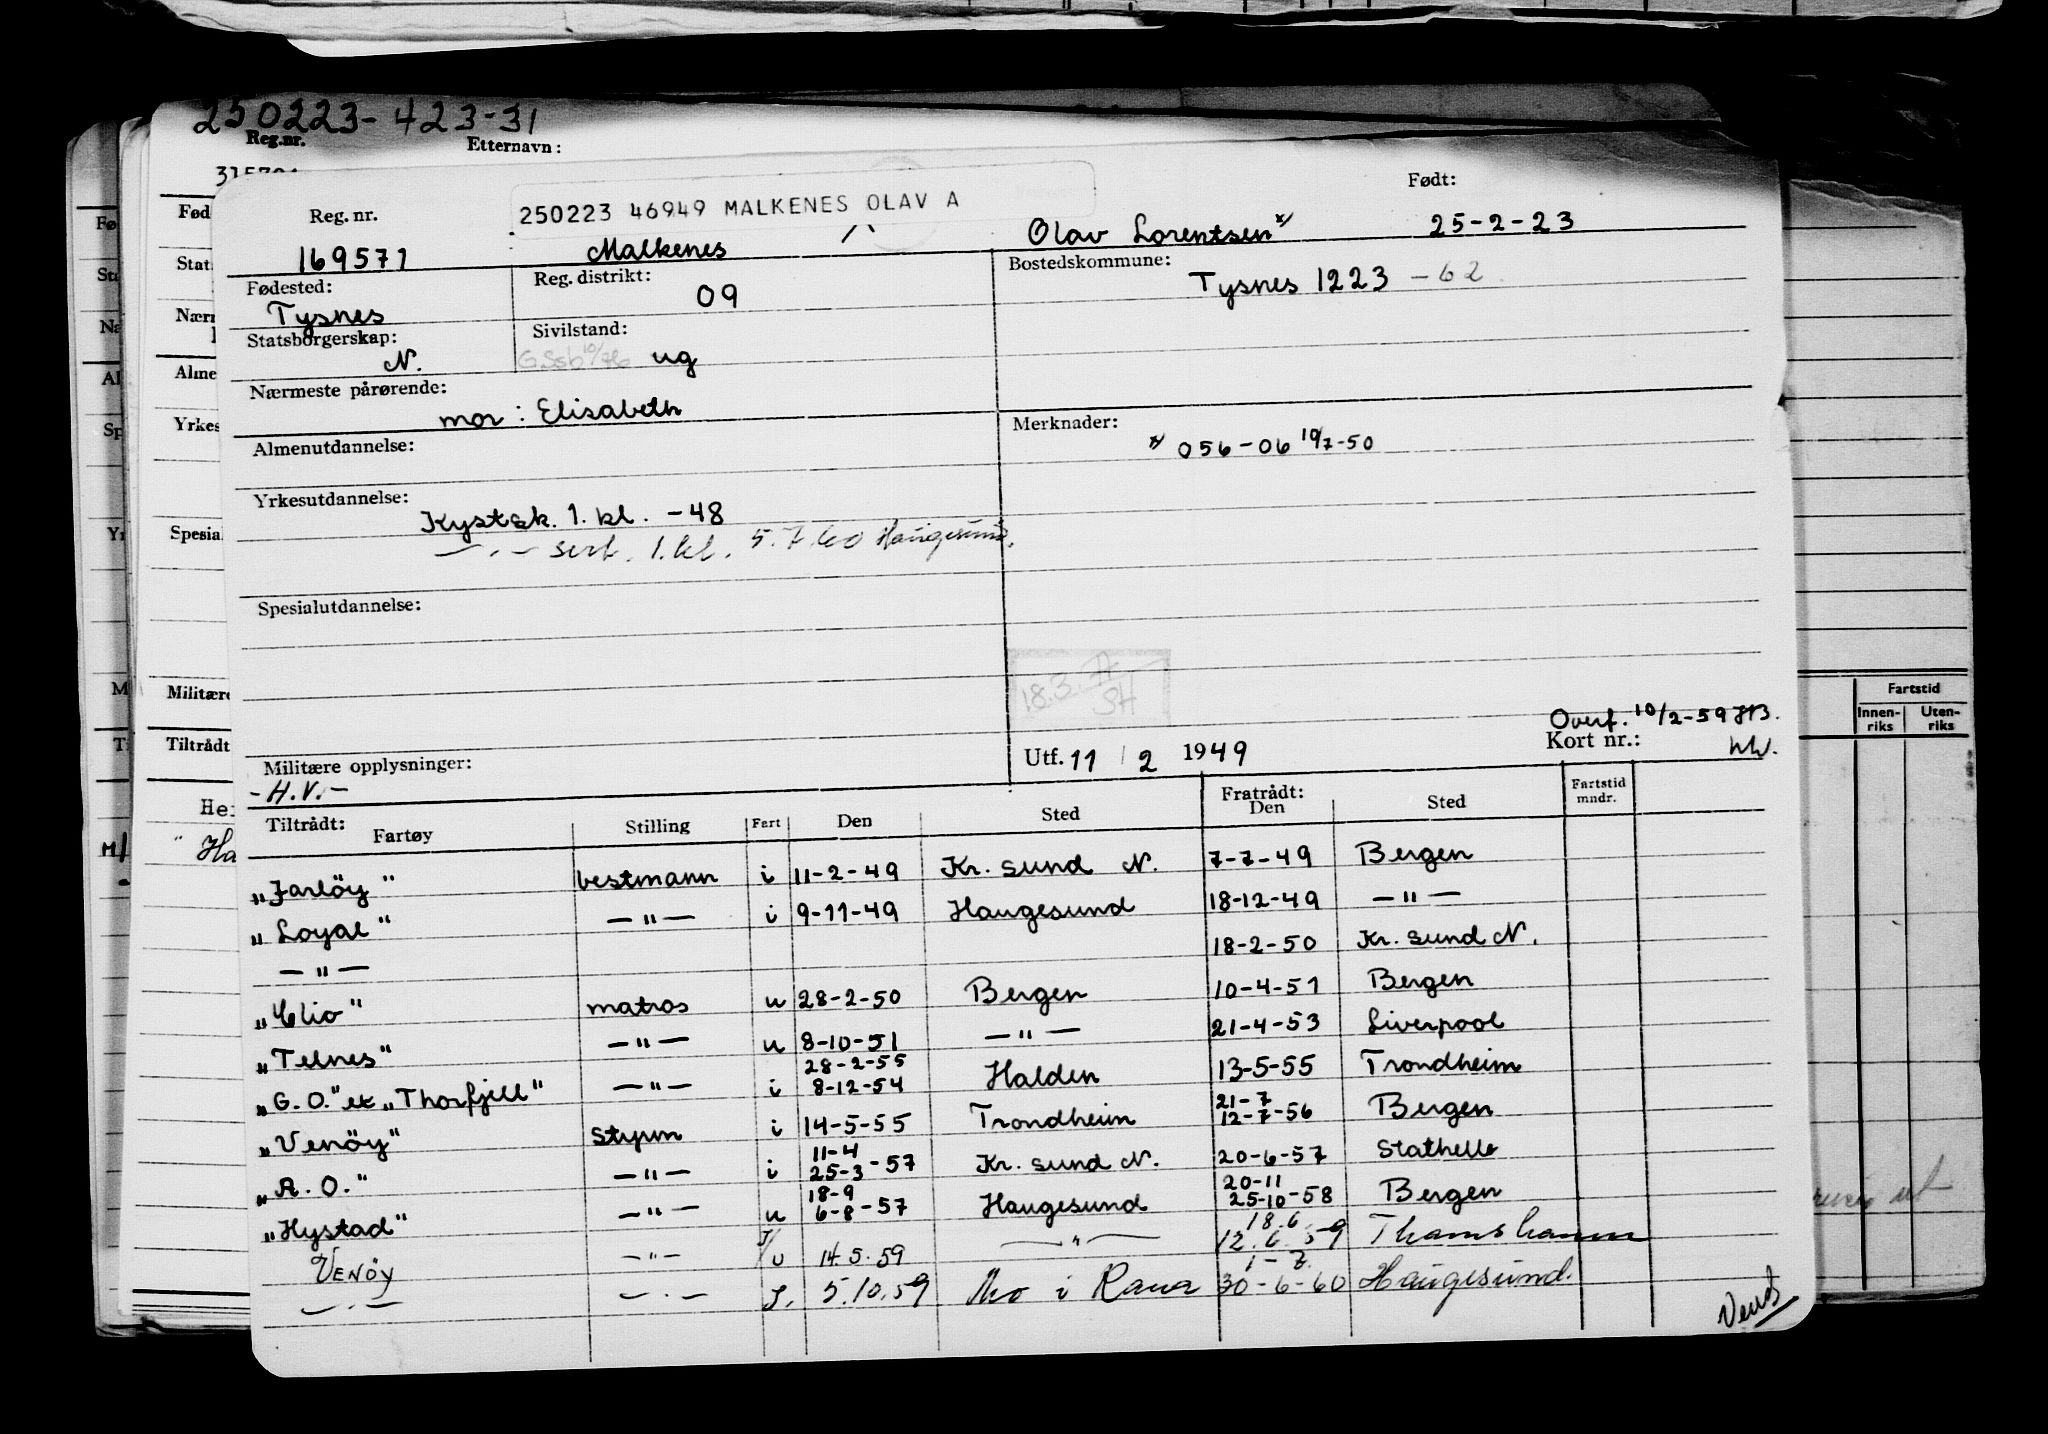 250223-423-31
Reg.nr. Etternavn:
Født:
250223 46949 MALKENES OLAV A
Reg. nr.
169571 Malkenes Olav Lorentsen x/ 25-2-23
Fødested: Reg. distrikt: Bostedskommune:
Tysnes 09 Tysnes 1223 -62
Statsborgerskap: Sivilstand:
N. ug
Nærmeste pårørende:
mor: Elisabeth
Almenutdannelse: Merknader:
x/ 056-06 10/7-50
Yrkesutdannelse:
Kystsk. 1. kl. -48
—.— sert. 1.kl. 5.7.60 Haugesund.
Spesialutdannelse:
18.3.
SH
Overf. 10/2-59 HB.
Militære opplysninger: Utf. 11/2 1949 Kort nr.:
- H.V. -
Tiltrådt: Fartøy Stilling Fart Den Sted Fratrådt: Den Sted Fartstid mndr.
"Jarlöy" bestmann i 11-2-49 Kr. sund N. 7-7-49 Bergen
"Loyal" —"— i 9-11-49 Haugesund 18-12-49 —"—
—"— 18-2-50 Kr. sund N.
"Clio" matros u 28-2-50 Bergen 10-4-51 Bergen
"Telnes" —"— u 8-10-51 —"— 21-4-53 Liverpool
28-2-55
"G.O." ex "Thorfjell" —"— i 8-12-54 Halden 13-5-55 Trondheim
21-7
"Venöy" Styrm i 14-5-55 Trondheim 12-7-56 Bergen
11-4
"R.O." —"— i 25-3-57 Kr. sund N. 20-6-57 Stathelle
18-9 20-11
"Hystad" —"— u 6-8-57 Haugesund 25-10-58 Bergen
18.6.
VENÖY —"— I/U 14.5.59 —"— 12.6.59 Thamshamn
1-7
—.— —.— I. 5.10.59 Mo i Rana 30-6-60 Haugesund.
Vend
Fartstid
Innen-riks Uten-riks